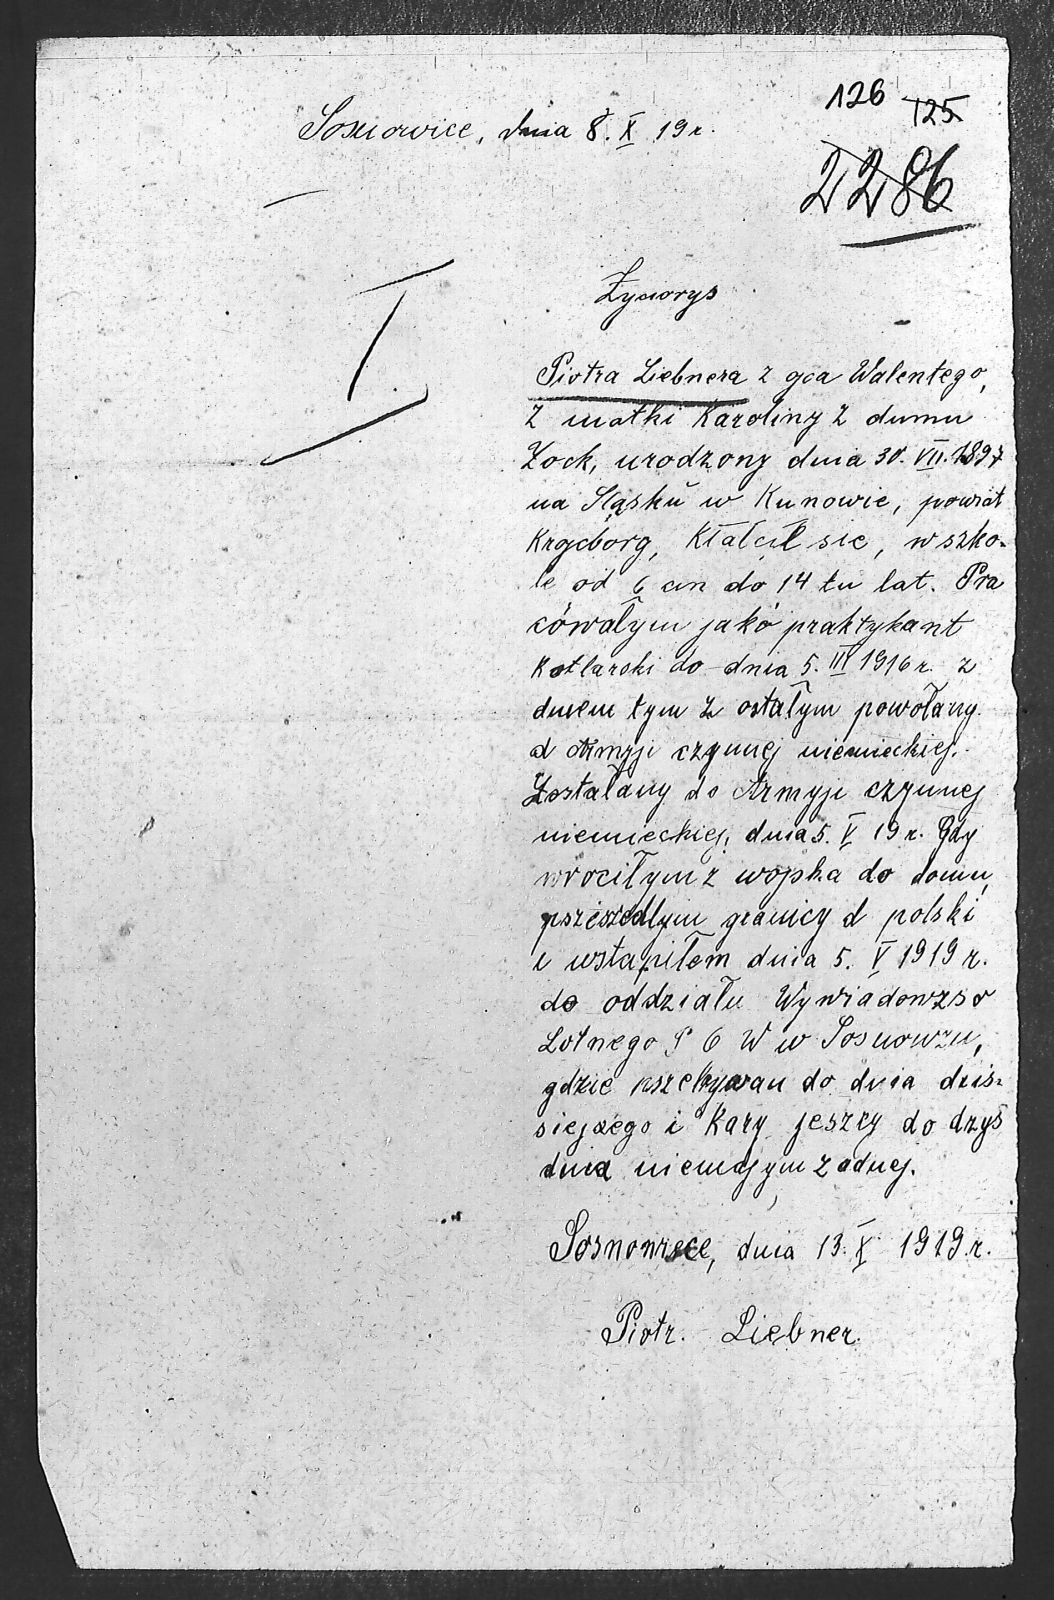 126 125
Sosnowice, dnia 8. X 19 r.
2286
I
Życiorys
Piotra Liebnera z ojca Walentego,
z matki Karoliny z dumu
Zock, urodzony dnia 30. VII. 1897
na Sląsku w Kunowie, powiat
Krycborg, Ktałcił sie, w szko-
le od 6 cin do 14 tu lat. Pra
cówałym jakó praktykant
Kotlarski do dnia 5. III 1916 r. z
dniem tym z ostałym powołany
d Armyji czynnej niemieckiej.
Zostałany do Armyji czynnej
niemieckiej, dnia 5. V 19 r. Gdy
wrociłym z wojska do domu,
pszészedlym granicy d polski
i wstapiłem dnia 5. V 1919 r.
do oddziału Wywiadowzso
Lotnego P 6 W w Sosnowzu,
gdzie pszebywau do dnia dzis-
siejzego i Kary jeszcy do dzyś
dnia niemajym zadnej.
Sosnowiece, dnia 13. X 1919 r.
Piotr. Liebner.